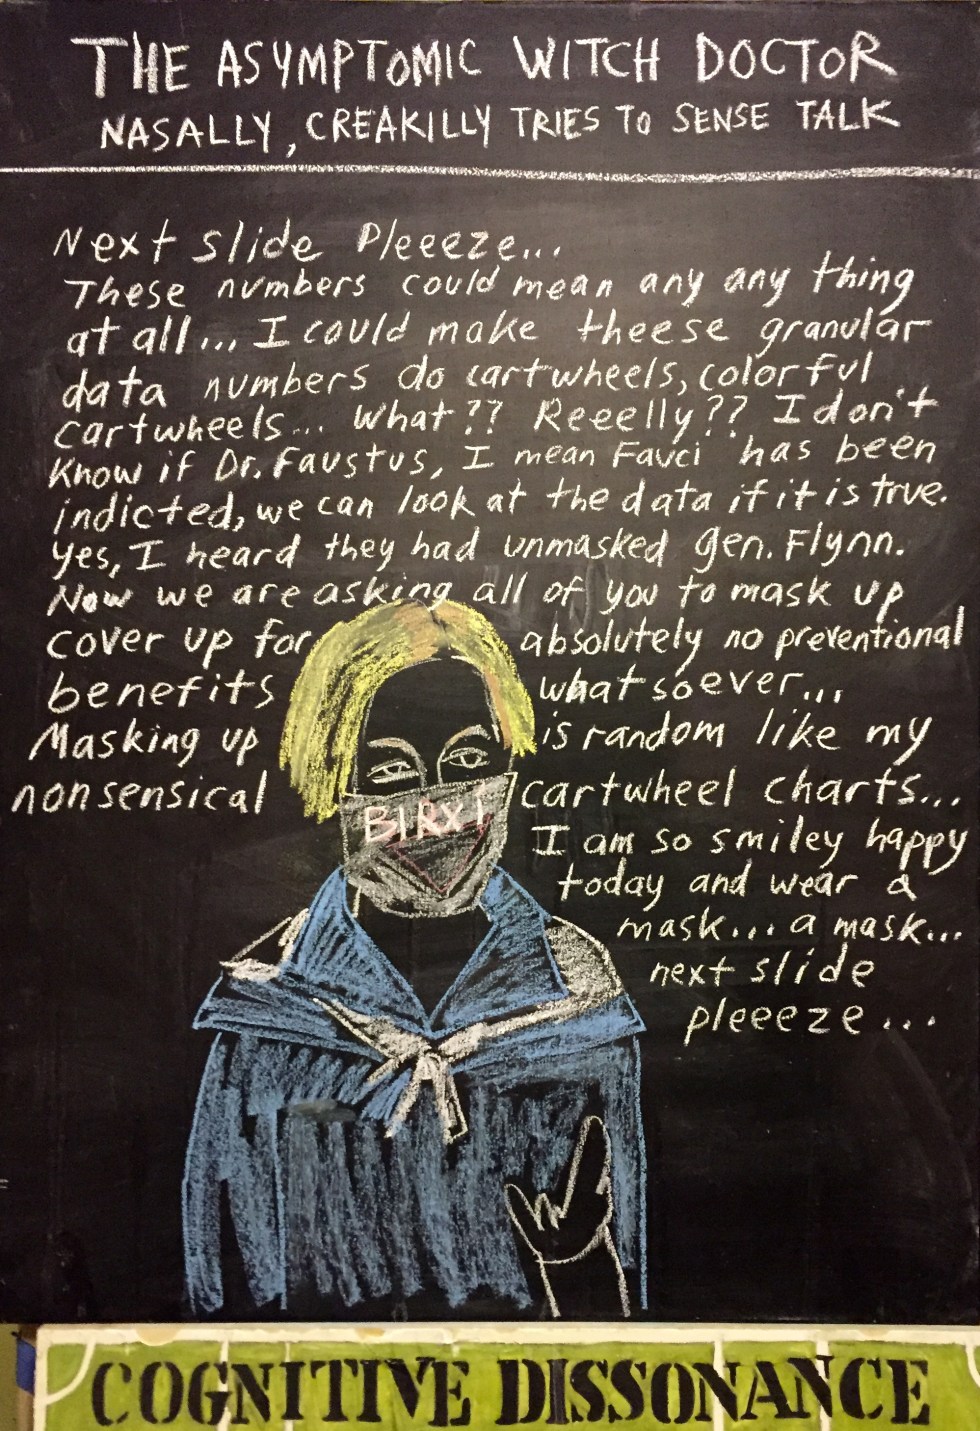 THE ASYMPTOMIC WITCH DOCTOR
NASALLY, CREAKILLY TRIES TO SENSE TALK
Next slide Pleeeze...
These numbers could mean any any thing
at all... I could make theese granular
data numbers do cartwheels, colorful
cartwheels... What?? Reeelly?? I don't
know if Dr. Faustus, I mean Fauci has been
indicted, we can look at the data if it is true.
Yes, I heard they had unmasked gen. Flynn.
Now we are asking all of you to mask up
cover up for absolutely no preventional
benefits whatsoever...
Masking up is random like my
nonsensical cartwheel charts...
BIRX!
I am so smiley happy
today and wear a
mask... a mask...
next slide
pleeeze...
COGNITIVE DISSONANCE